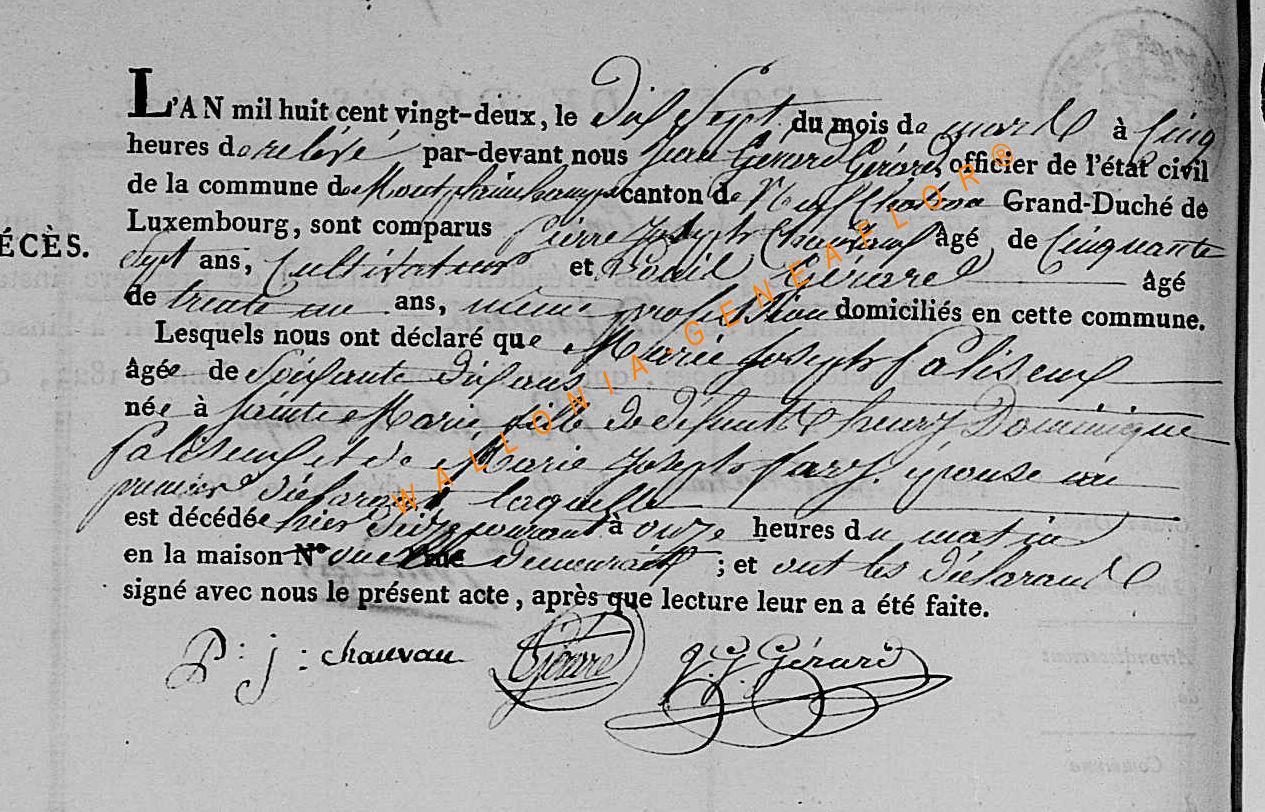 L'AN mil huit cent vingt-deux, le dix Sept du mois de mars à Cinq
heures de relevé par-devant nous Jean Gérard Gérard, officier de l'état civil
de la commune de canton de Neufchateau Grand-Duché de
ÉCÈS.
Luxembourg, sont comparus Pierre Joseph âgé de Cinquante
Sept ans, Cultivateur et Gérard âgé
de trente un ans, même profession domiciliés en cette commune.
Lesquels nous ont déclaré que Marie Joseph
âgée de Soixante dix ans
née à Sainte Marie fille de défunts henry Dominique
et de Marie Joseph epouse au
premier déclarant laquelle
est décédée hier Seize courant à onze heures du matin
en la maison N° ; et ont les déclarants
signé avec nous le présent acte, après que lecture leur en a été faite.
P: j: chauvau Gérard J. G. Gérard
WALLONIA-GENEAFLOR®